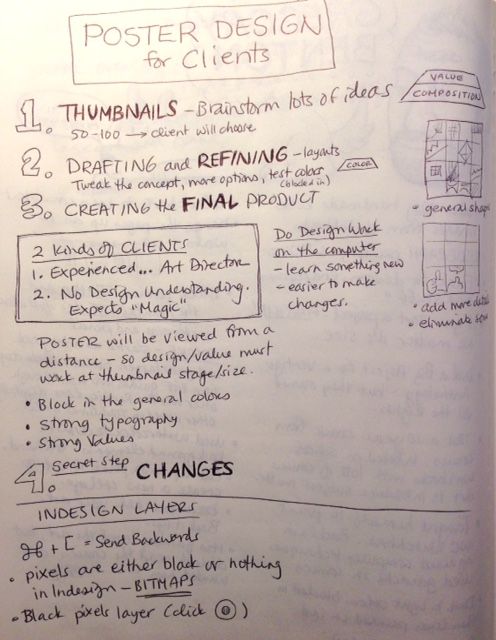 POSTER DESIGN
for Clients
1. THUMBNAILS – Brainstorm lots of ideas
50-100 → client will choose
VALUE
COMPOSITION
2. DRAFTING and REFINING – layouts
Tweak the concept, more options, test colors
(blocked in)
COLOR
3. CREATING the FINAL PRODUCT
• general shapes
2 Kinds of CLIENTS
1. Experienced... Art Director
2. No Design Understanding.
Expects "Magic"
Do Design Work
on the computer
– learn something new
– easier to make
changes.
• add more
• eliminate
POSTER will be viewed from a
distance – so design/value must
work at thumbnail stage/size.
• Block in the general colors
• Strong typography
• Strong Values
4. Secret Step CHANGES
INDESIGN LAYERS
⌘ + [ = Send Backwards
• pixels are either black or nothing
in Indesign – BITMAPS
• Black pixels layer (click ◎)